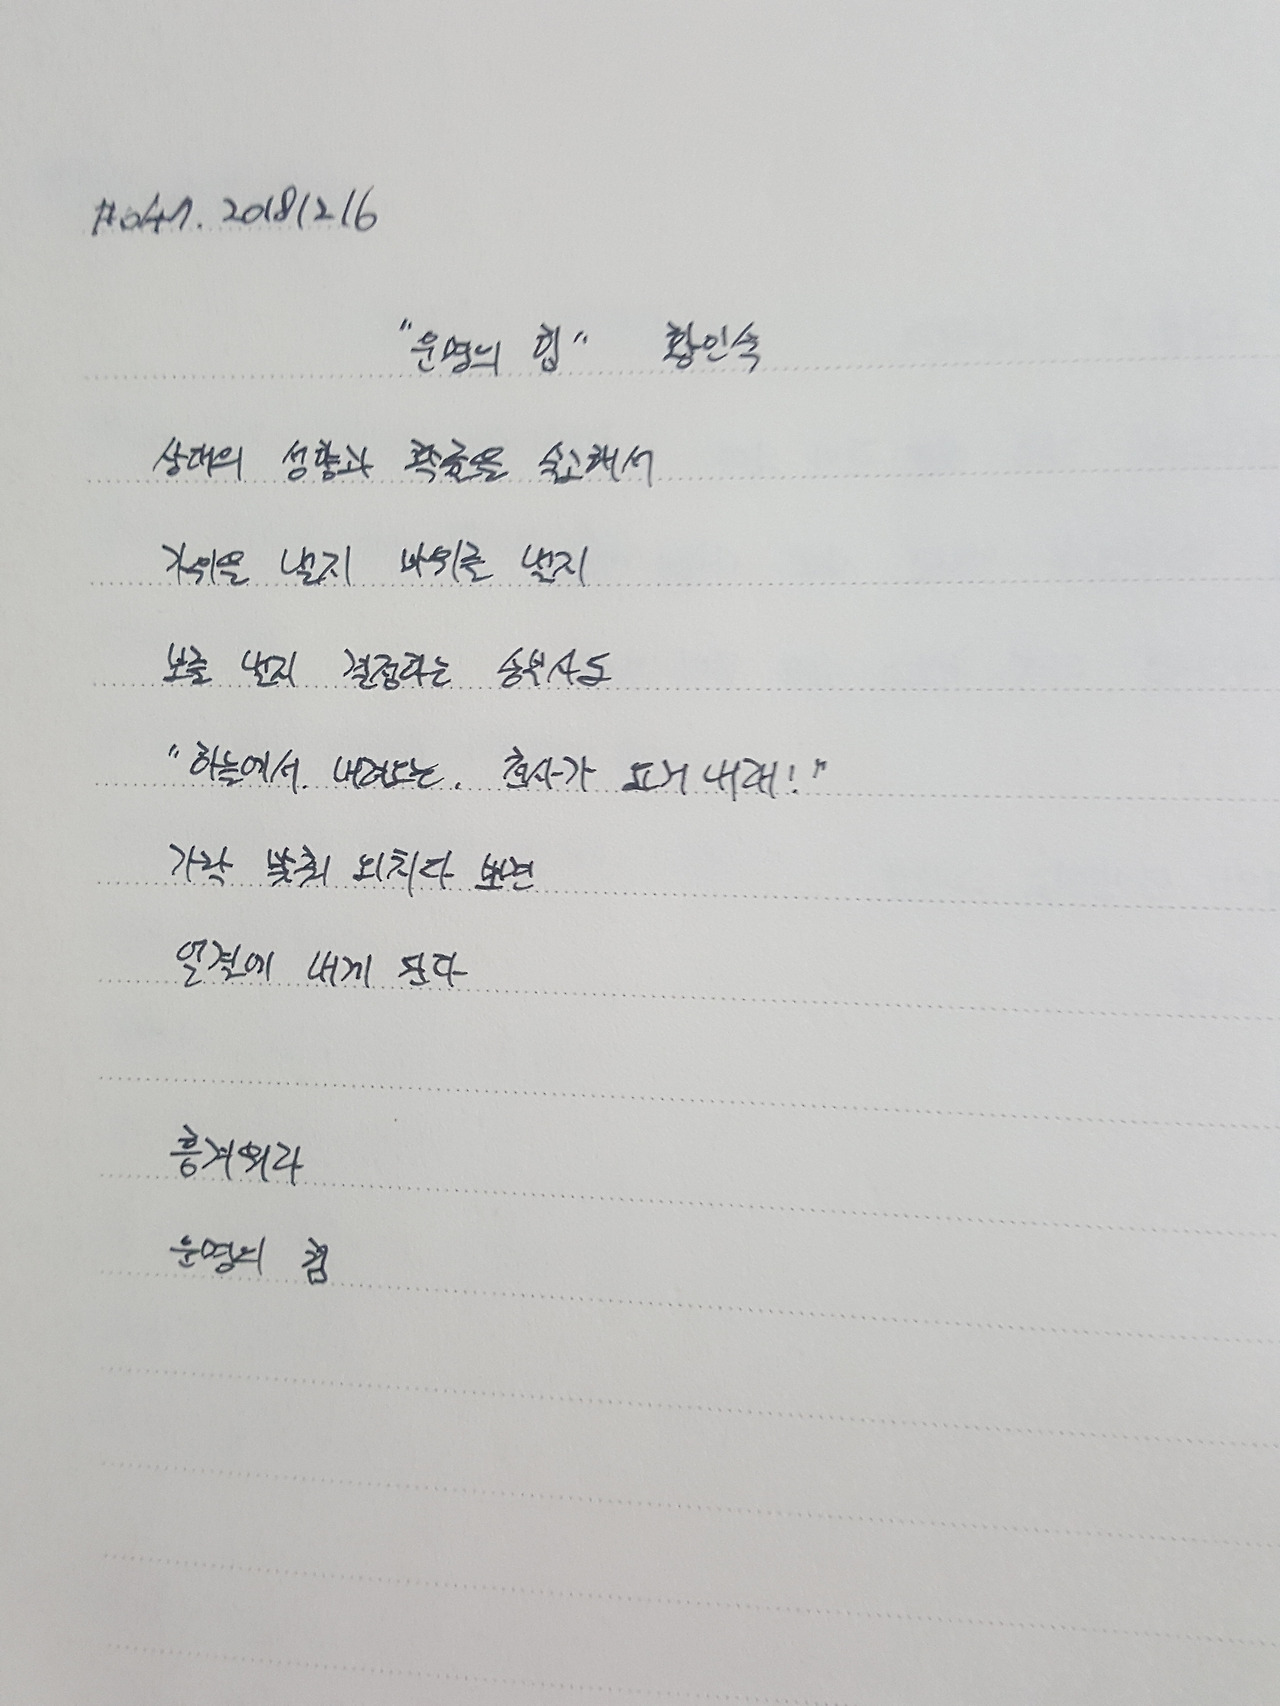 #047. 20181216
"운명의 힘" 황인숙
상대의 성향과 확률을 숙고해서
가위를 낼지 바위를 낼지
보를 낼지 결정하는 승부사도
"하늘에서. 내려오는. 천사가 요거 내래!"
가락 맞춰 외치다 보면
얼결에 내게 된다
흥겨워라
운명의 힘